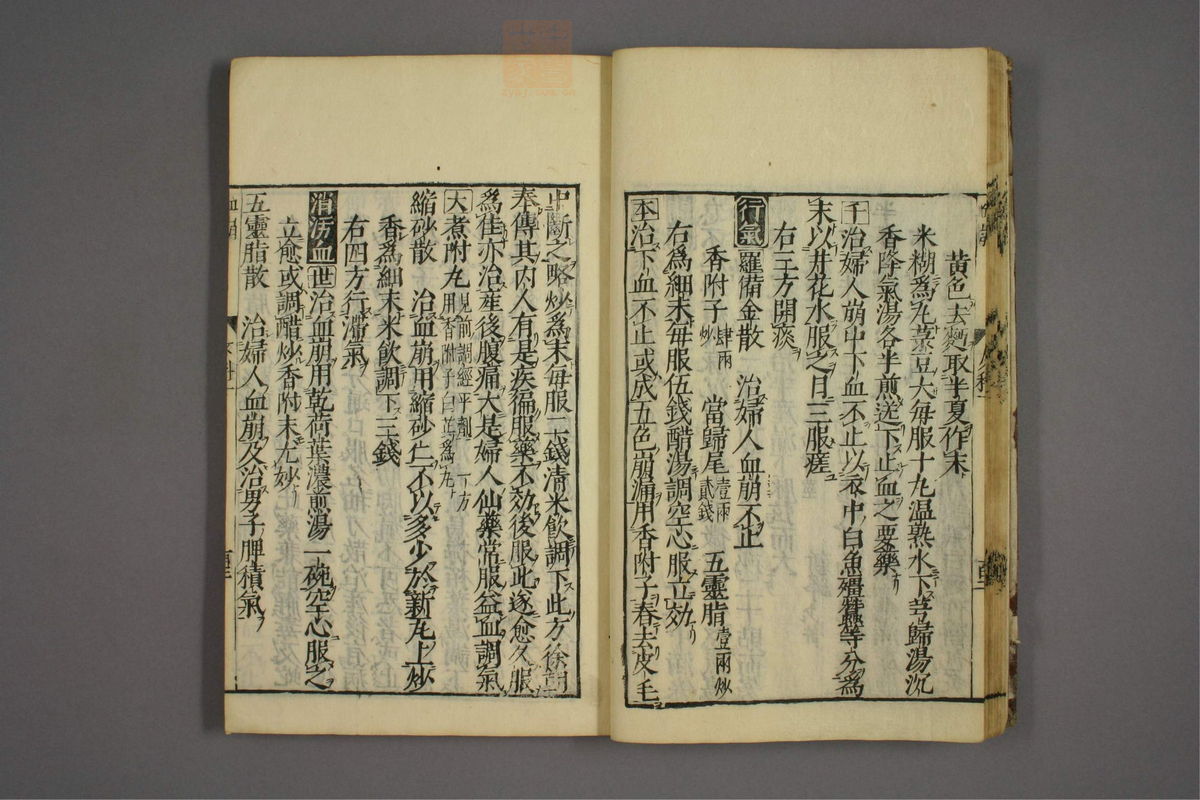 黄色去麪取半夏作末
米糊為丸菉豆大每服十丸温熟水下芎歸湯沉
香降氣湯各半煎送下止血之要藥
千治婦人崩中下血不止以衣中白魚殭蠶等分為
末以井花水服之日三服瘥
右三方開痰
行氣 羅備金散 治婦人血崩不止
香附子肆兩炒 當歸尾壹兩貳錢 五靈脂壹兩炒
右為細末每服伍錢醋湯調空心服立効
本治下血不止或成五色崩漏用香附子舂去皮毛
中斷之略炒為末每服二錢清米飲調下此方徐朝
奉傳其内人有是疾徧服藥不効後服此遂愈久服
為佳亦治産後腹痛大是婦人仙藥常服益血調氣
大煮附丸見前調經平劑一方用香附子白芷為丸
縮砂散 治血崩用縮砂仁不以多少於新瓦上炒
香為細末米飲調下三錢
右四方行滯氣
消汚血 世治血崩用乾荷葉濃煎湯一碗空心服之
立愈或調醋炒香附末尤妙
五靈脂散 治婦人血崩及治男子脾積氣